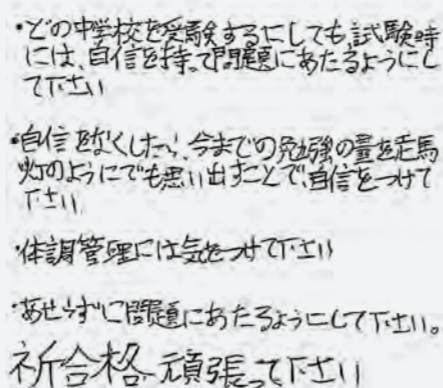 ・どの中学校を受験するにしても試験時
には、自信を持って問題にあたるようにし
て下さい
・自信をなくしたら、今までの勉強の量を走馬
灯のようにでも思い出すことで、自信をつけて
下さい
・体調管理には気をつけて下さい
・あせらずに問題にあたるようにして下さい。
祈合格 頑張って下さい